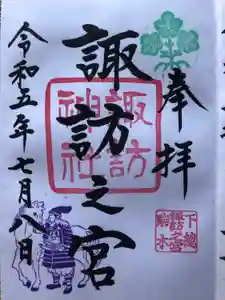 奉拝
諏訪之宮
諏訪
神社
令和五年七月八日
下総
諏訪之宮
駒木